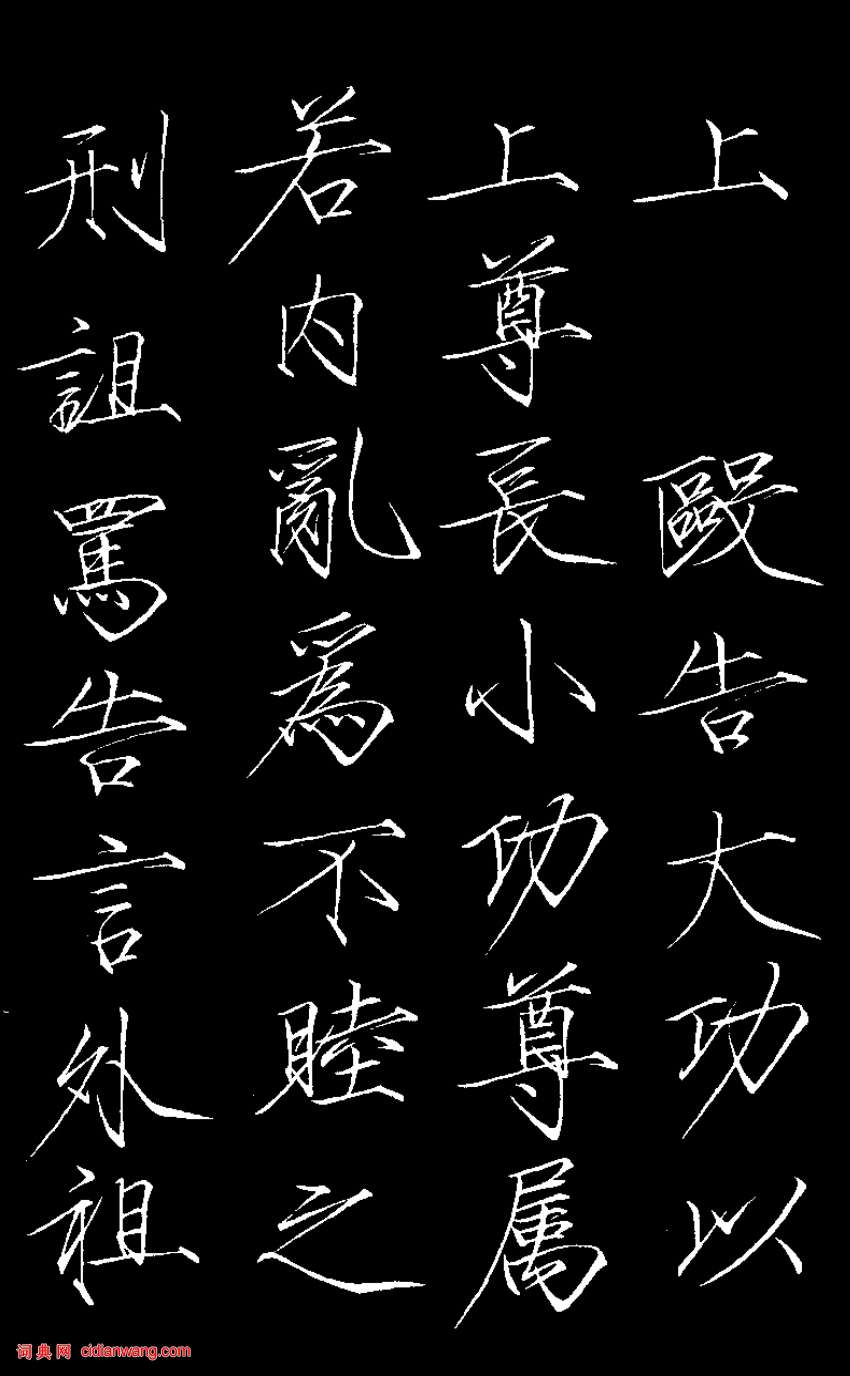 上 毆告大功以
上尊長小功尊属
若内亂為不睦之
刑詛罵告言外祖
词典网 cidianwang.com